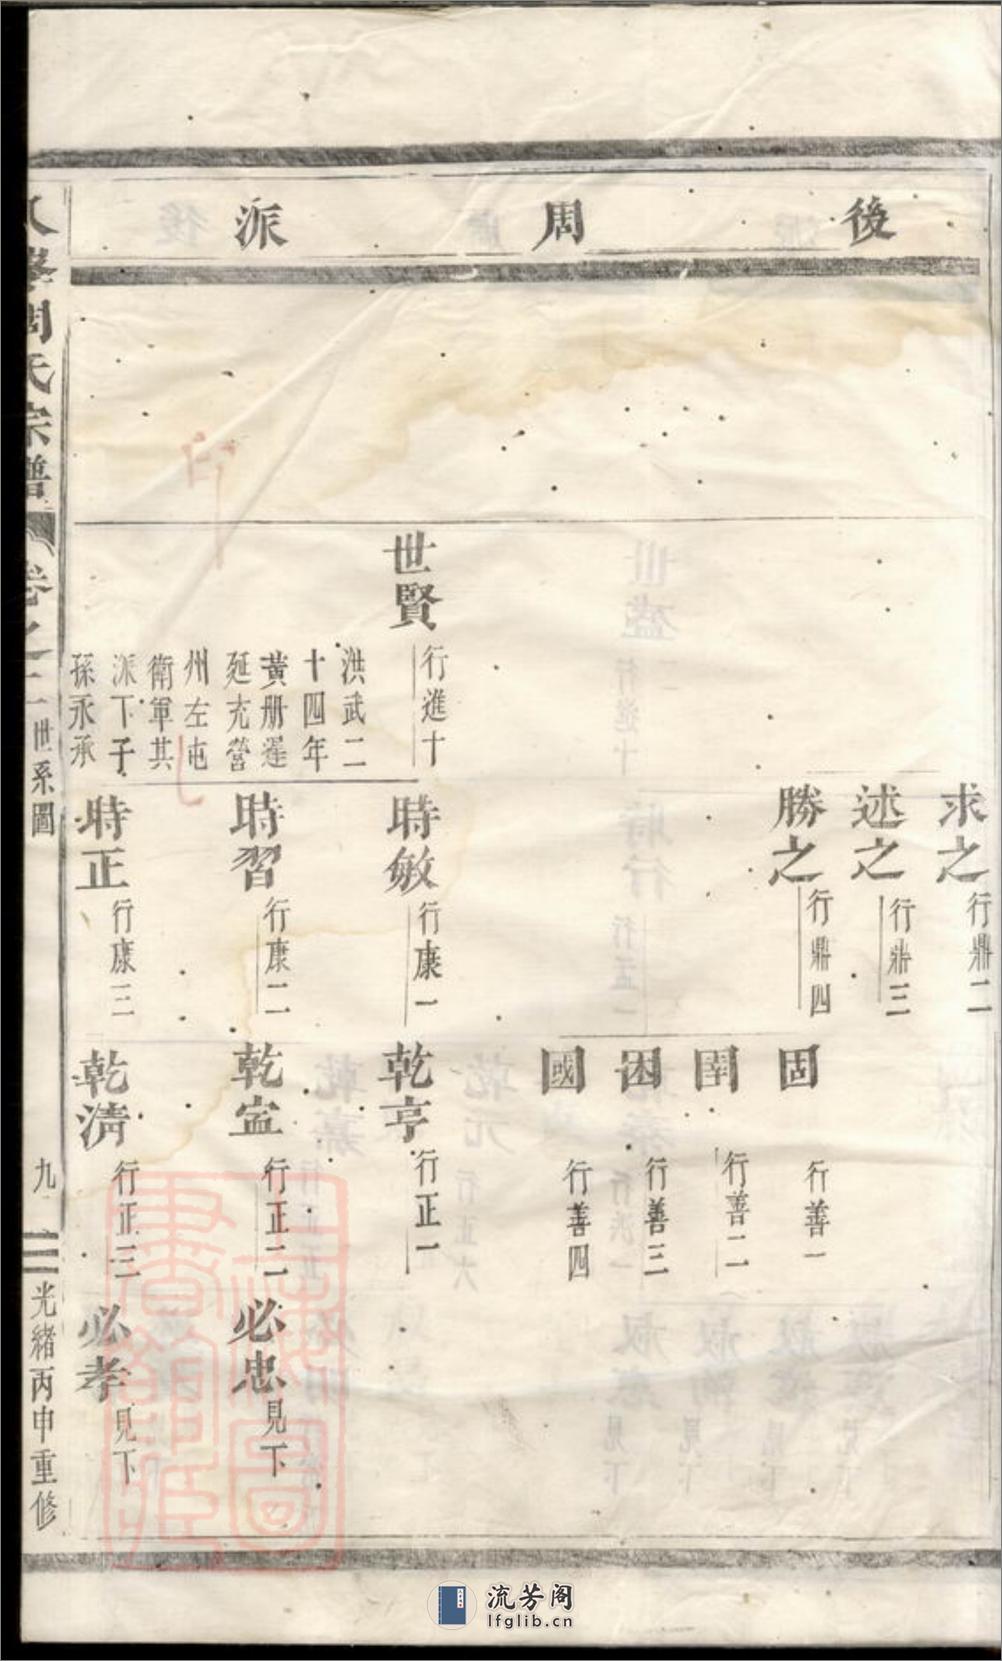 後周派
求之 行鼎二
述之 行鼎三
勝之 行鼎四
固 行善一
行善二
困 行善三
國 行善四
世賢 行進十
洪武二
十四年
黃册遲
延充營
州左屯
衛軍其
派下子
孫永承
時敏 行康一
乾亨 行正一
時習 行康二
乾㝎 行正二
必忠 見下
時正 行康三
乾淸 行正三
必孝 見下
周氏宗譜
卷之二
世系圖
九
光緒丙申重修
流芳阁
lfglib.cn